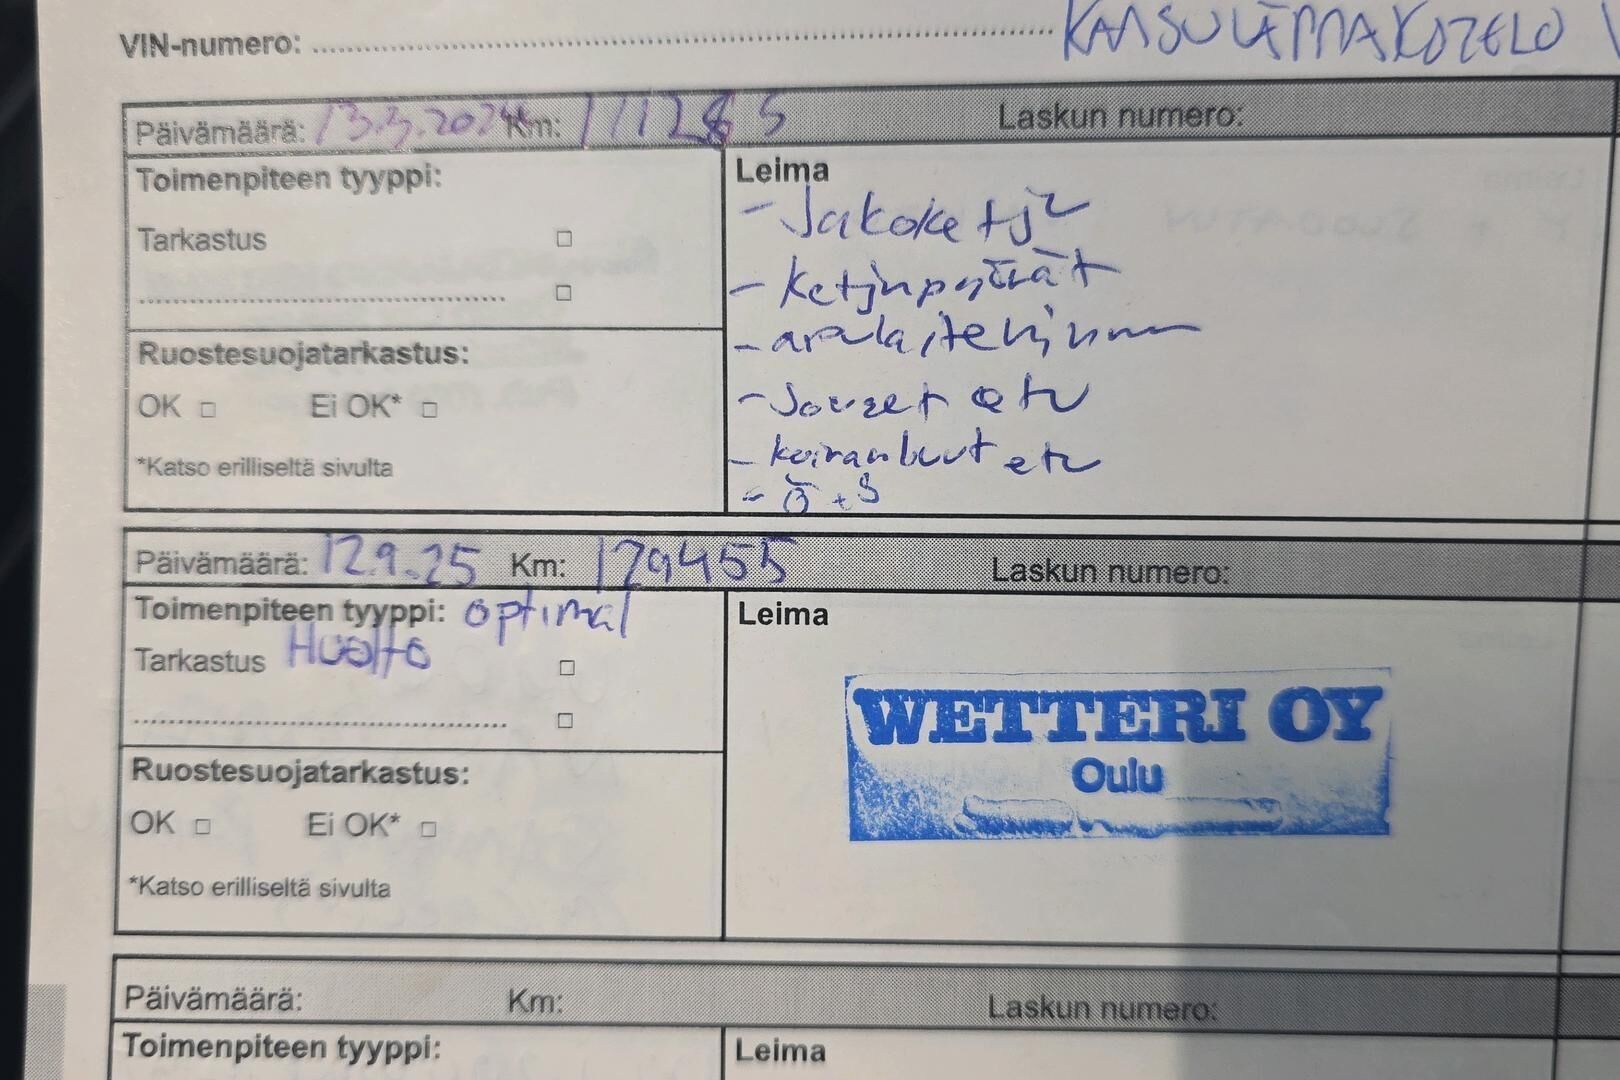 VIN-numero:
Päivämäärä: 13.3.2024 Km: 111285 Laskun numero:
Toimenpiteen tyyppi:
Leima
- Jakoketju
Tarkastus
- Ketjupyörät
- apulaitehihna
Ruostesuojatarkastus:
OK Ei OK*
- etc
- koiranluut etc
*Katso erilliseltä sivulta
- Ö + S
Päivämäärä: 12.9.25 Km: 129455 Laskun numero:
Toimenpiteen tyyppi: optimal
Leima
Tarkastus Huolto
WETTERI OY
Oulu
Ruostesuojatarkastus:
OK Ei OK*
*Katso erilliseltä sivulta
Päivämäärä: Km: Laskun numero:
Toimenpiteen tyyppi:
Leima